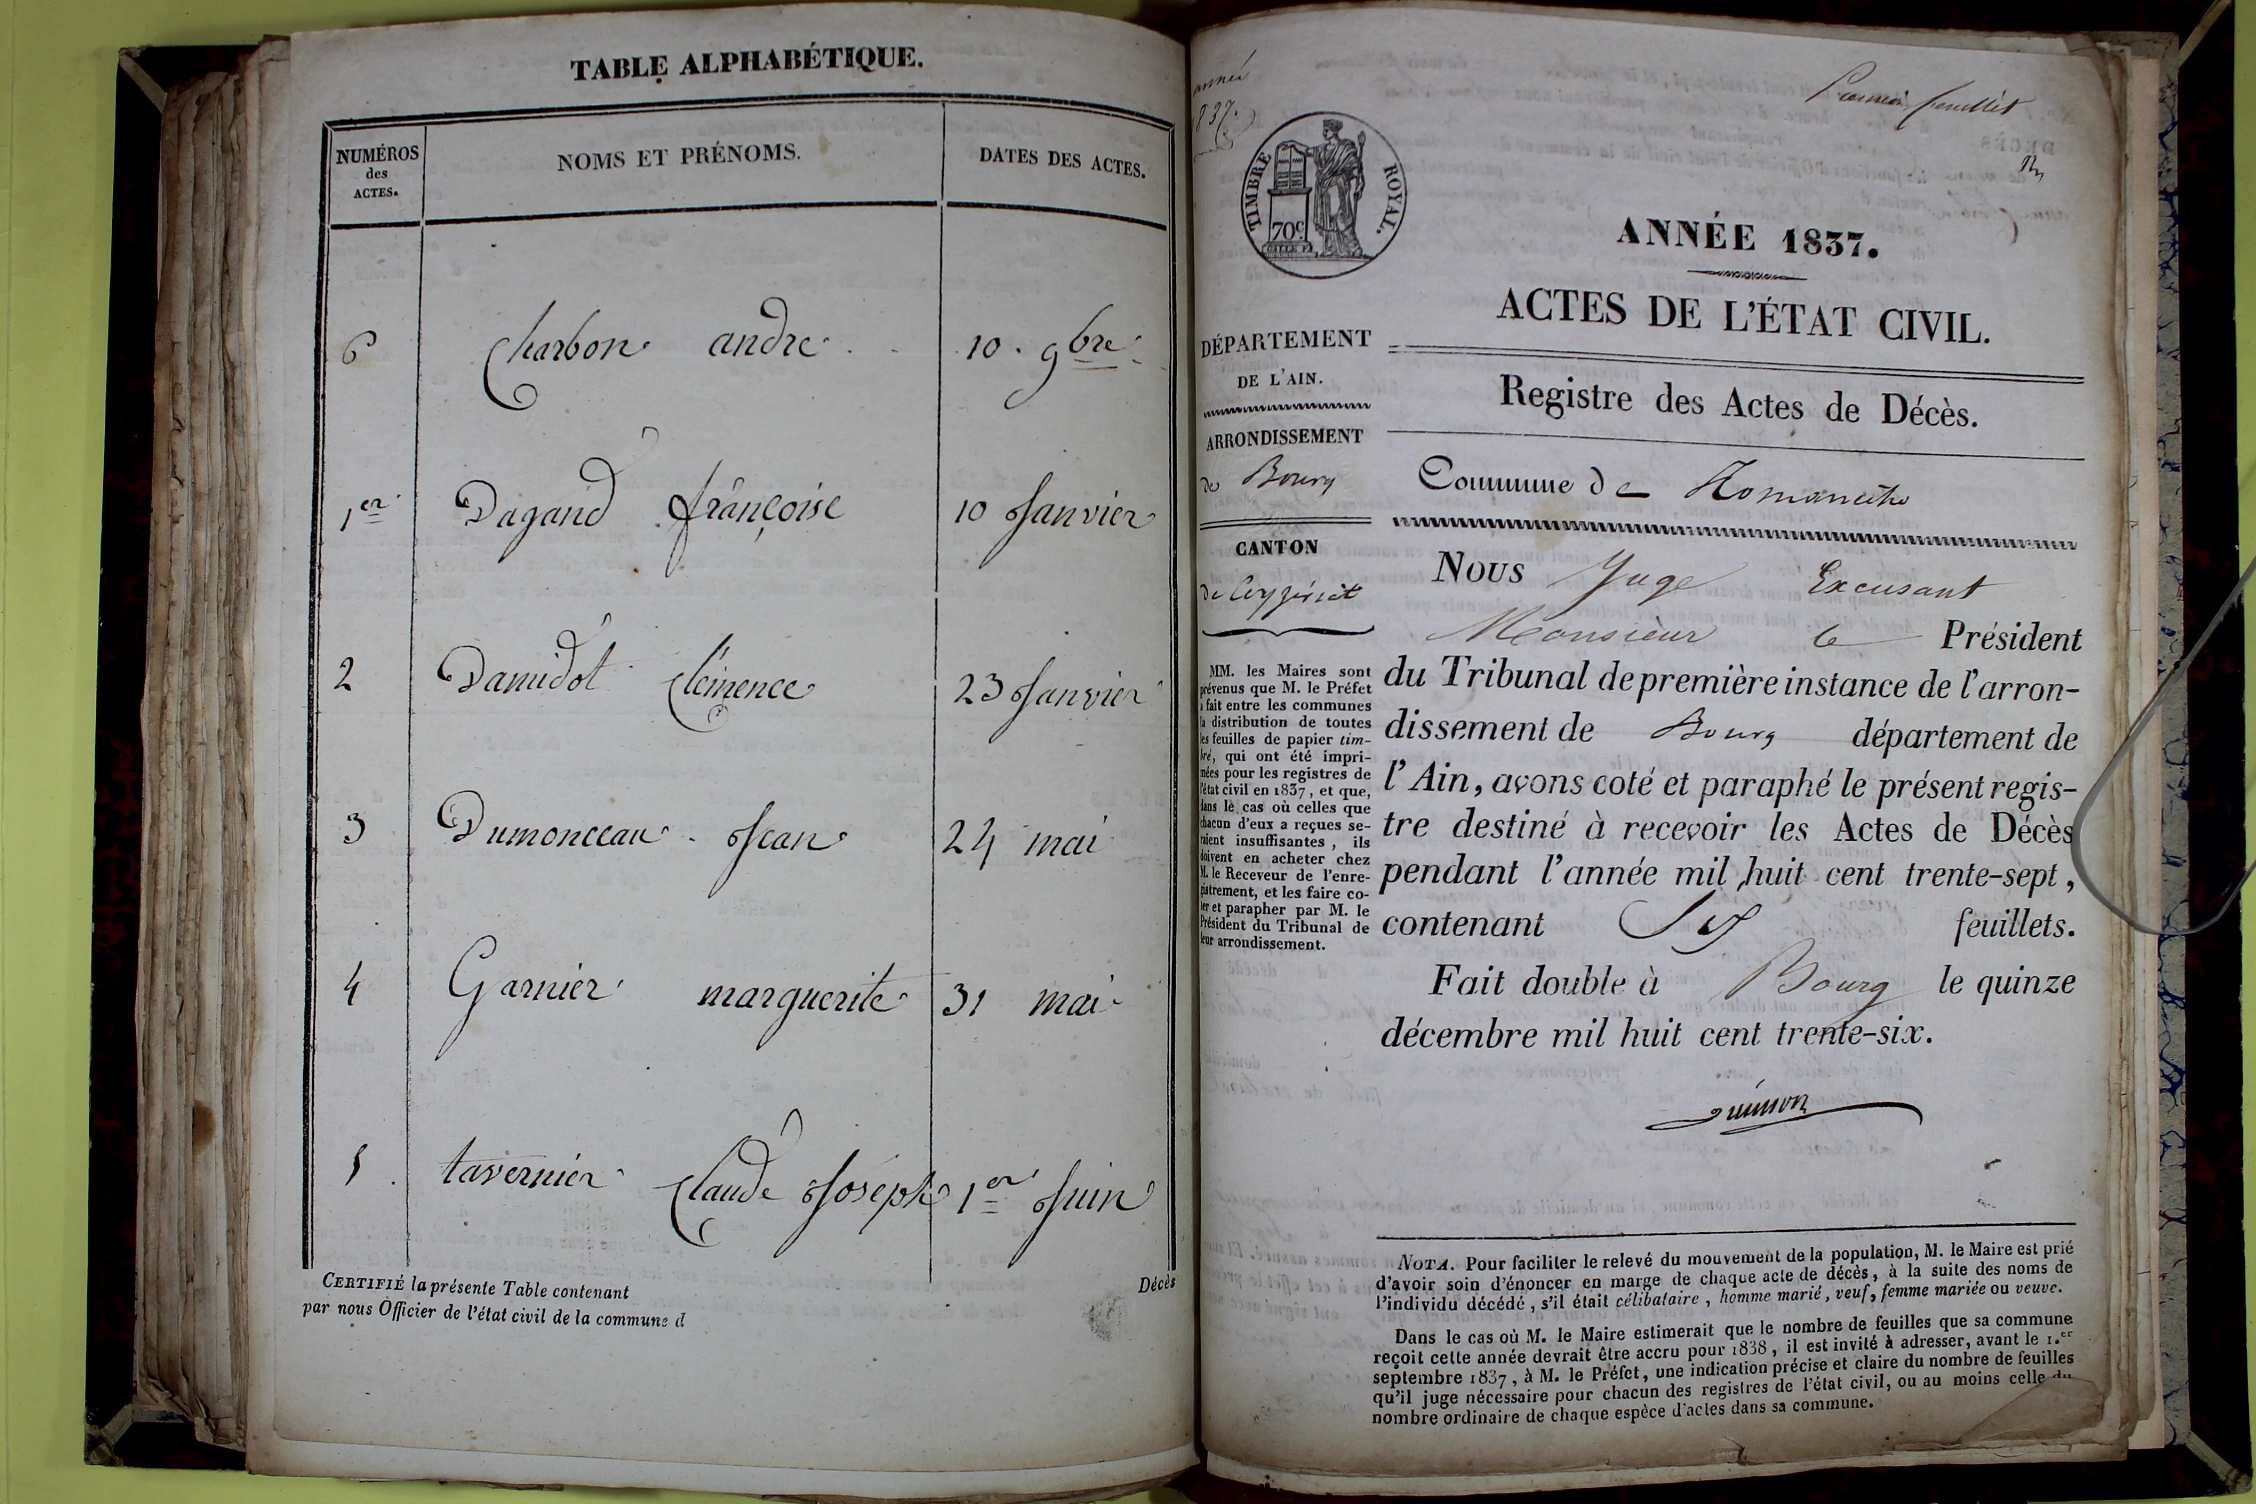 TABLE ALPHABÉTIQUE.
NUMÉROS
des
ACTES.
NOMS ET PRÉNOMS.
DATES DES ACTES.
6 Charbon andre 10 . 9bre
1er Dagand françoise 10 Janvier
2 Damidot Clémence 23 Janvier
3 Dumonceau Jean 24 mai
4 Garnier marguerite 31 mai
5 tavernier Claude Joseph 1er Juin
CERTIFIÉ la présente Table contenant Décès
par nous Officier de l'état civil de la commune d
année
1837.
Premier feuillet
TIMBRE ROYAL.
70c
ANNÉE 1837.
ACTES DE L'ÉTAT CIVIL.
DÉPARTEMENT
DE L'AIN.
ARRONDISSEMENT
de Bourg
CANTON
de Ceyzériat
MM. les Maires sont
prévenus que M. le Préfet
a fait entre les communes
la distribution de toutes
les feuilles de papier tim-
bré, qui ont été impri-
mées pour les registres de
l'état civil en 1837, et que,
dans le cas où celles que
chacun d'eux a reçues se-
raient insuffisantes, ils
doivent en acheter chez
M. le Receveur de l'enre-
gistrement, et les faire co-
ter et parapher par M. le
Président du Tribunal de
leur arrondissement.
Registre des Actes de Décès.
Commune de Romanèche
Nous Juge Excusant
Monsieur le Président
du Tribunal de première instance de l'arron-
dissement de Bourg département de
l'Ain, avons coté et paraphé le présent regis-
tre destiné à recevoir les Actes de Décès
pendant l'année mil huit cent trente-sept,
contenant Six feuillets.
Fait double à Bourg le quinze
décembre mil huit cent trente-six.
NOTA. Pour faciliter le relevé du mouvement de la population, M. le Maire est prié
d'avoir soin d'énoncer en marge de chaque acte de décès, à la suite des noms de
l'individu décédé, s'il était célibataire, homme marié, veuf, femme mariée ou veuve.
Dans le cas où M. le Maire estimerait que le nombre de feuilles que sa commune
reçoit cette année devrait être accru pour 1838, il est invité à adresser, avant le 1.er
septembre 1837, à M. le Préfet, une indication précise et claire du nombre de feuilles
qu'il juge nécessaire pour chacun des registres de l'état civil, ou au moins celle du
nombre ordinaire de chaque espèce d'actes dans sa commune.